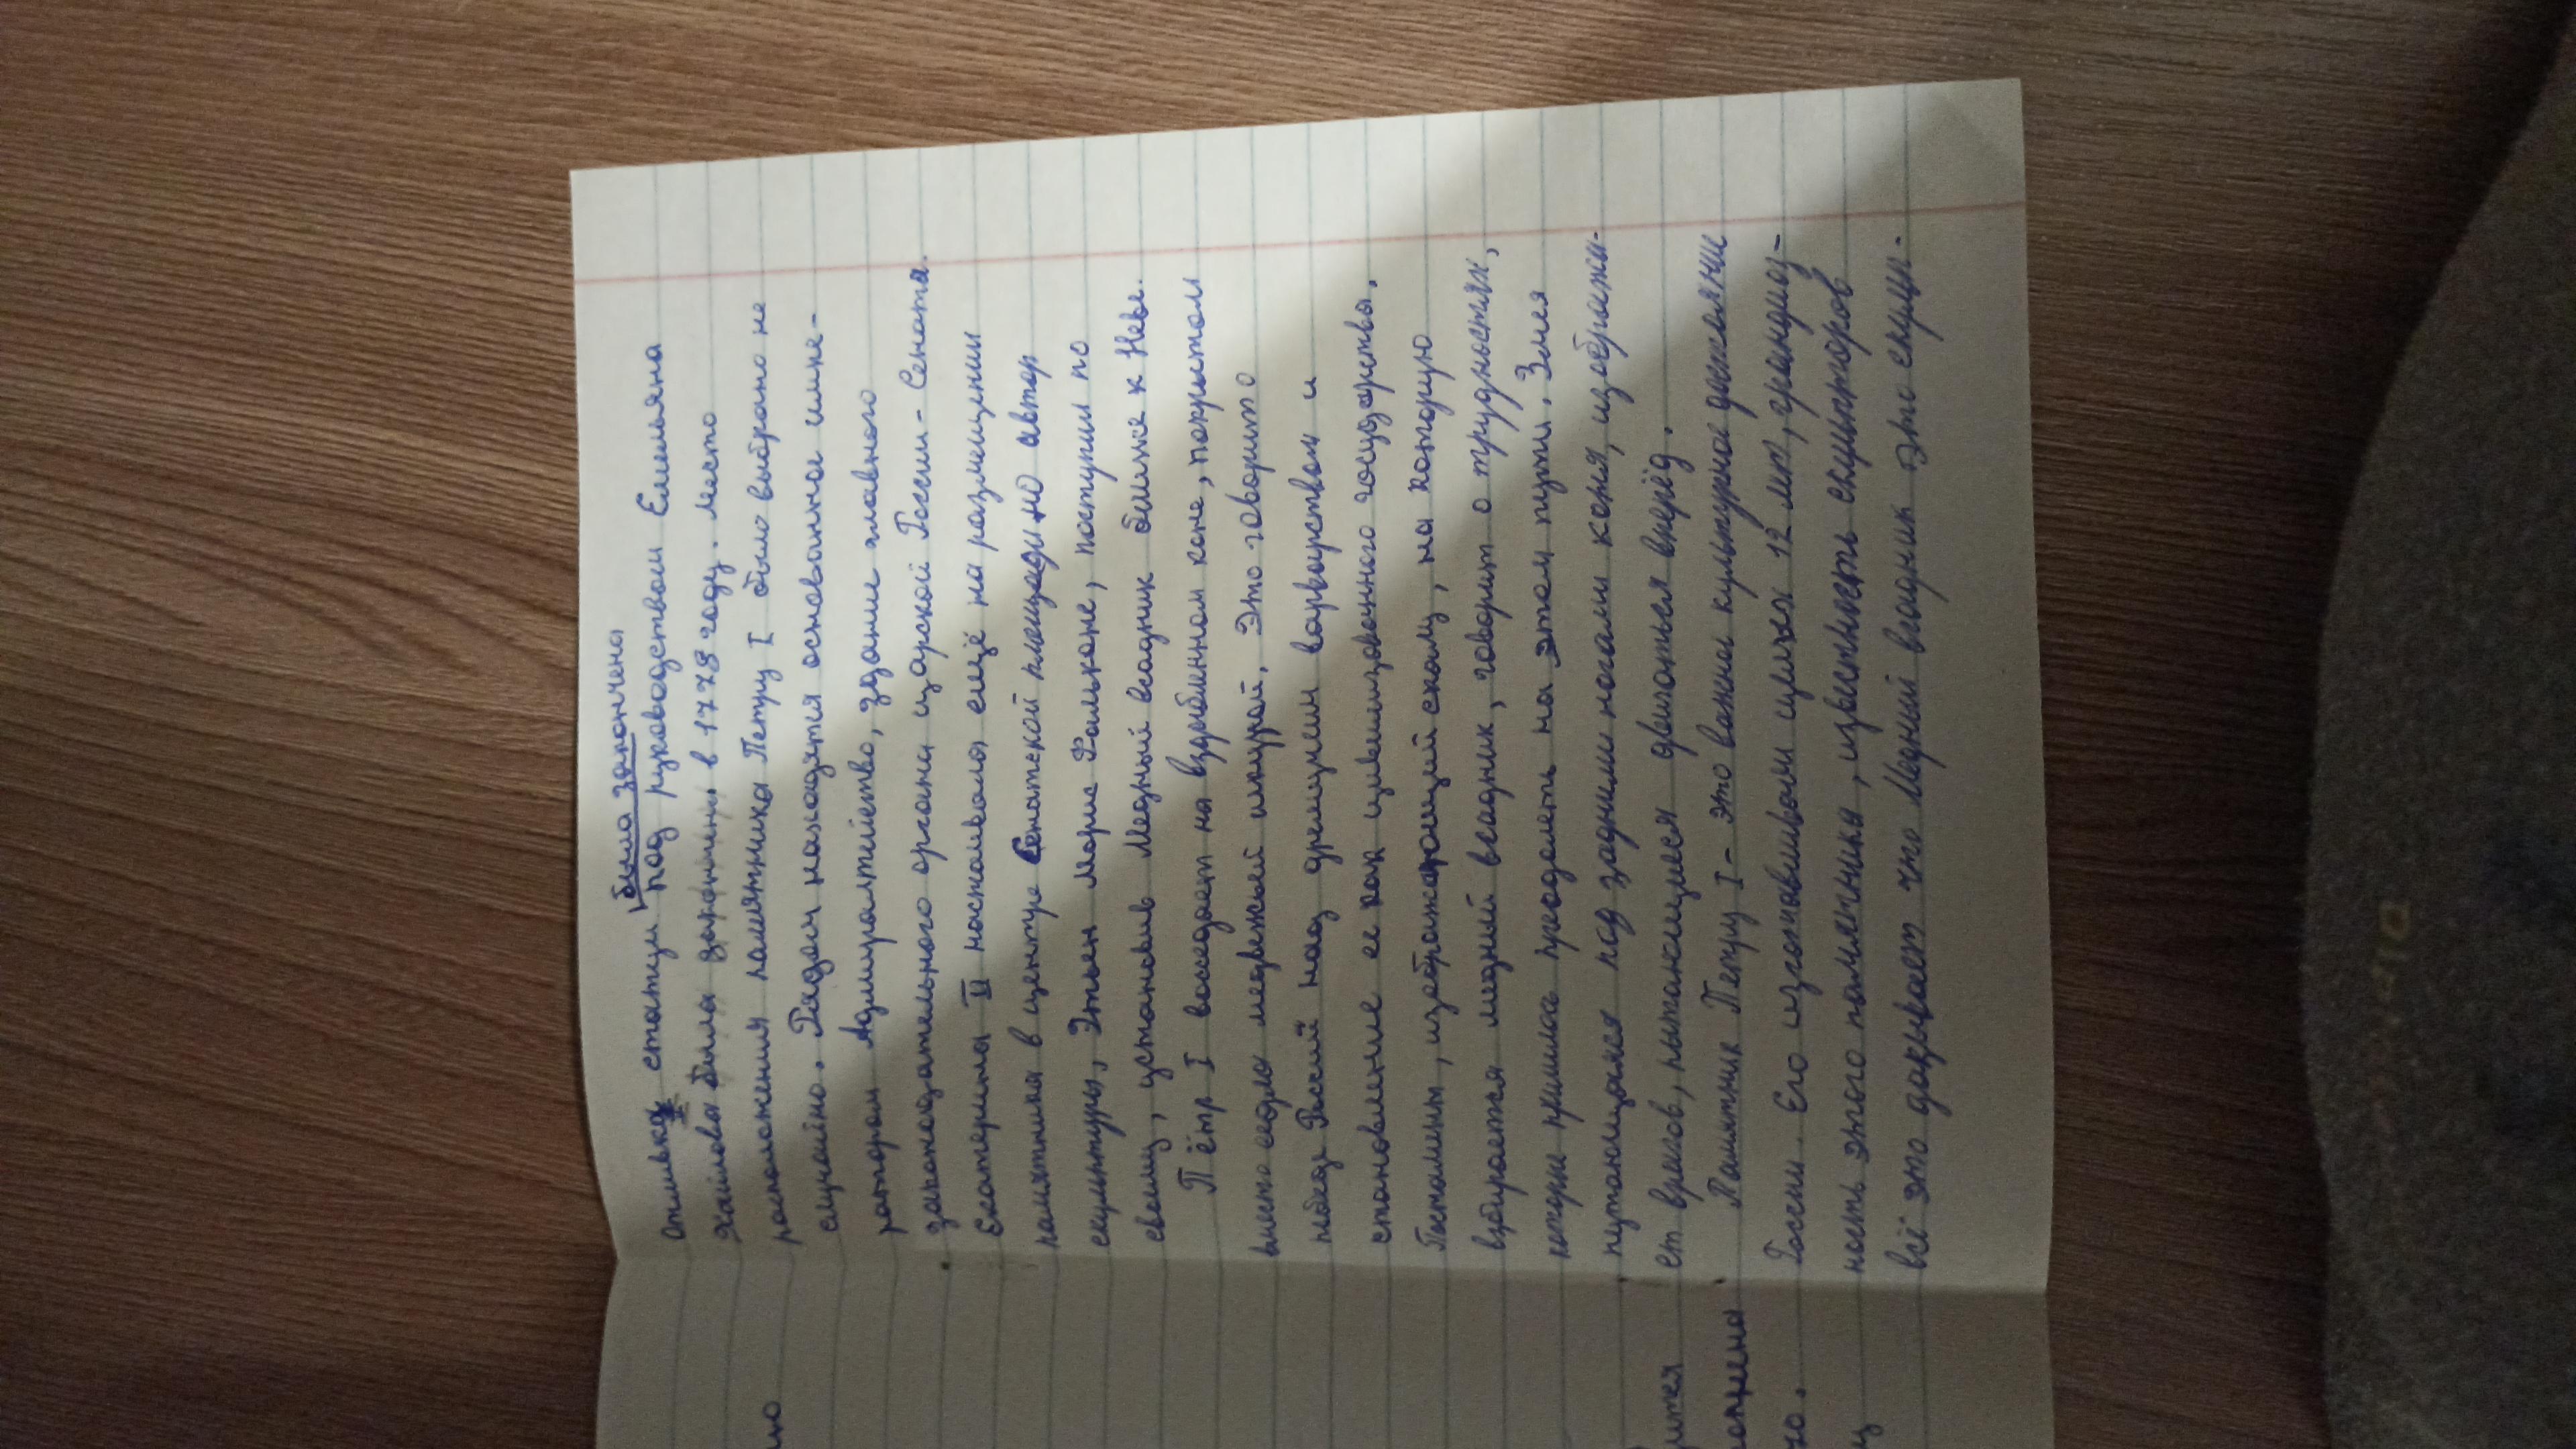 была закончена
Отливка статуи под руководством Емельяна
Хайлова была закончина в 1778 году. Место
расположения памятника Петру I было выбрано не
случайно. Рядом находятся основанное импе-
ратором Адмиралтейство, здание главного
законодательного органа царской России - Сената.
Екатерина II настаивала ещё на размещении
памятника в центре Сенатской площади но автор
скульптуры, Этьен Морис Фальконе, поступил по
своему, установив Медный всадник ближе к Неве.
Пётр I восседает на вздыбленном коне, покрытом
вместо седла медвежьей шкурой. Это говорит о
победе Россий над дремучем варварством и
становление ее как цивилизованного государства.
Постамент, изображающий скалу, на которую
взбирается медний всадник, говорит о трудностях,
которые пришлось преодалеть на этом пути. Змея
путающаяся под задними ногами коня, изобража-
ет врагов, пытающиеся двигаться вперёд.
Памятник Петру I - это важны культурное достояние
России. Его изготавливали целых 12 лет, грандиоз-
ность этого памятника, известность скульпторов
всё это докрывает что Медний всадник это скуль-
ную
ится
.
но.